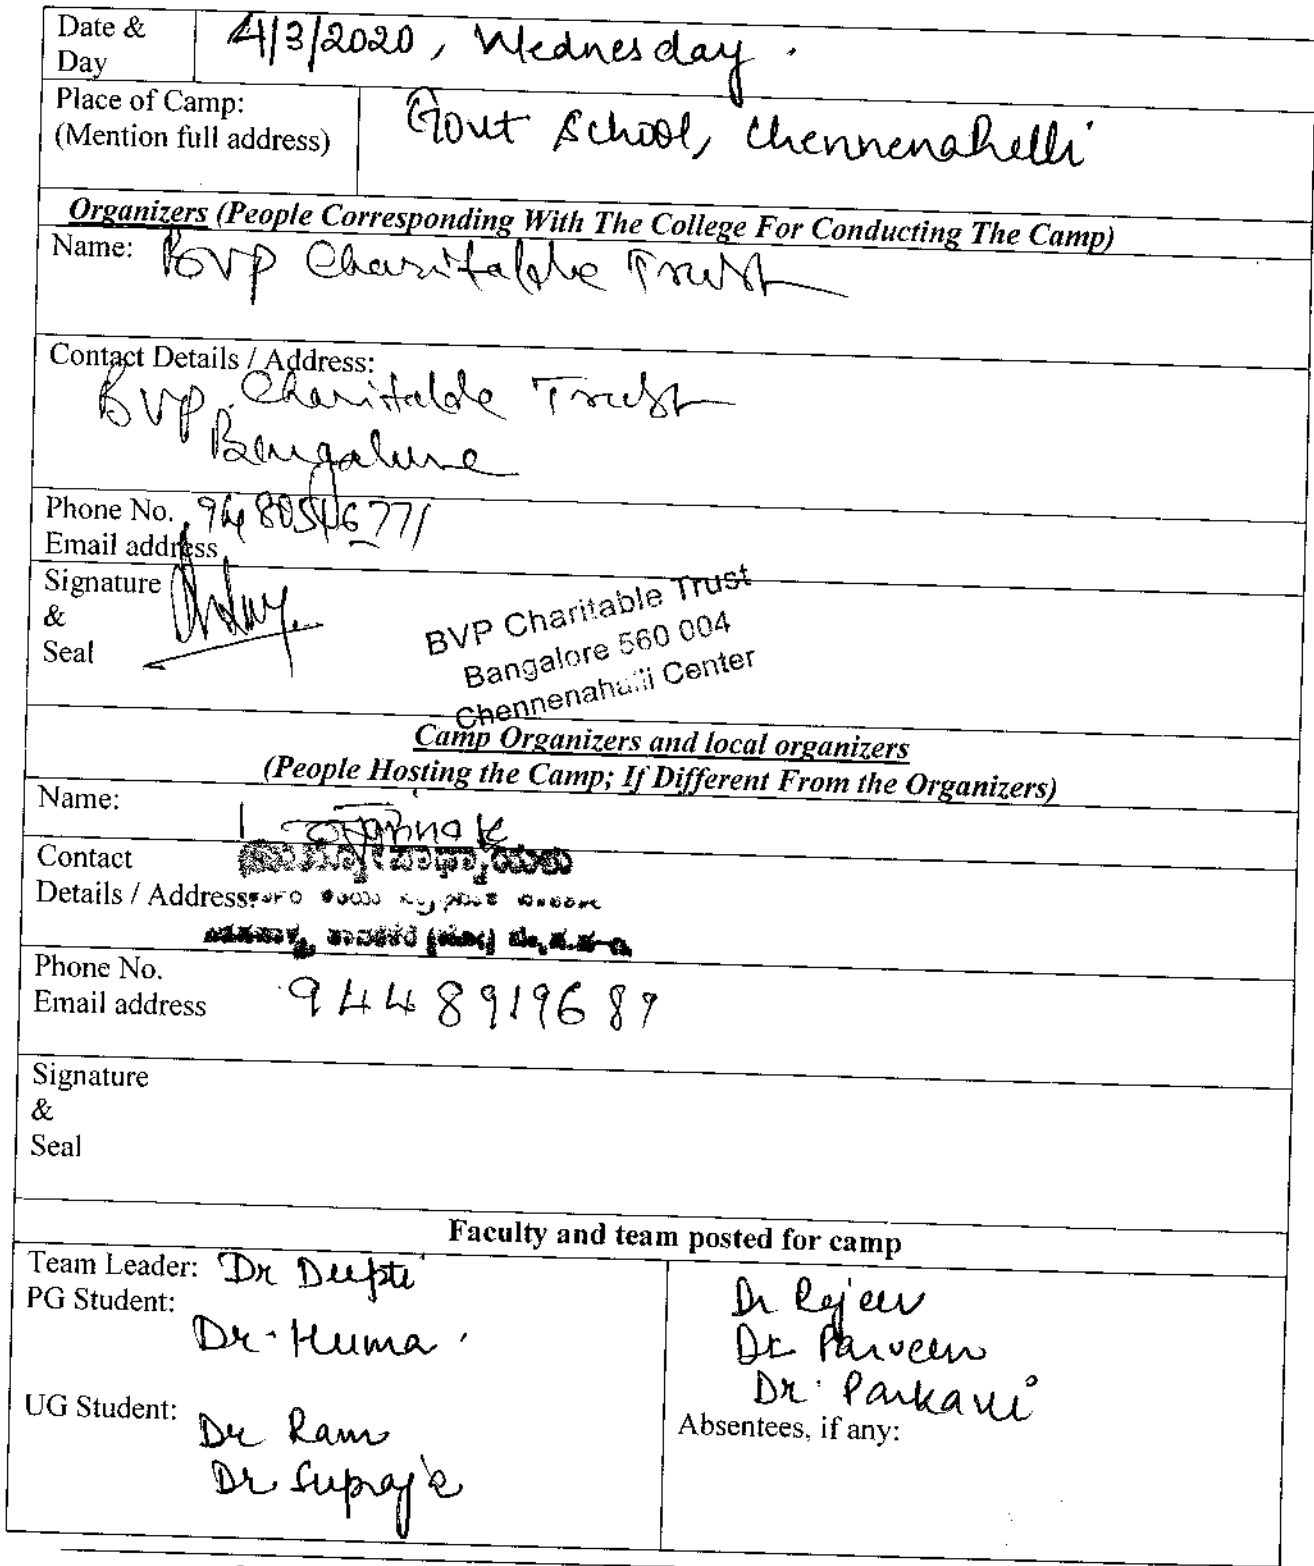 Date & Day 4/3/2020, Wednesday.
Place of Camp:
(Mention full address) Govt School, Chennenahelli
Organizers (People Corresponding With The College For Conducting The Camp)
Name: BVP Charitable Trust
Contact Details / Address:
BVP Charitable Trust
Bengalure
Phone No. 9480546771
Email address
Signature
&
Seal
BVP Charitable Trust
Bangalore 560 004
Chennenahalli Center
Camp Organizers and local organizers
(People Hosting the Camp; If Different From the Organizers)
Name:
Contact
Details / Address:
Phone No.
Email address 9448919687
Signature
&
Seal
Faculty and team posted for camp
Team Leader: Dr Deepti
PG Student:
Dr. Huma.
UG Student:
Dr Ram
Dr Supraja
Dr Rajeev
Dr Parveen
Dr. Parkavi
Absentees, if any: